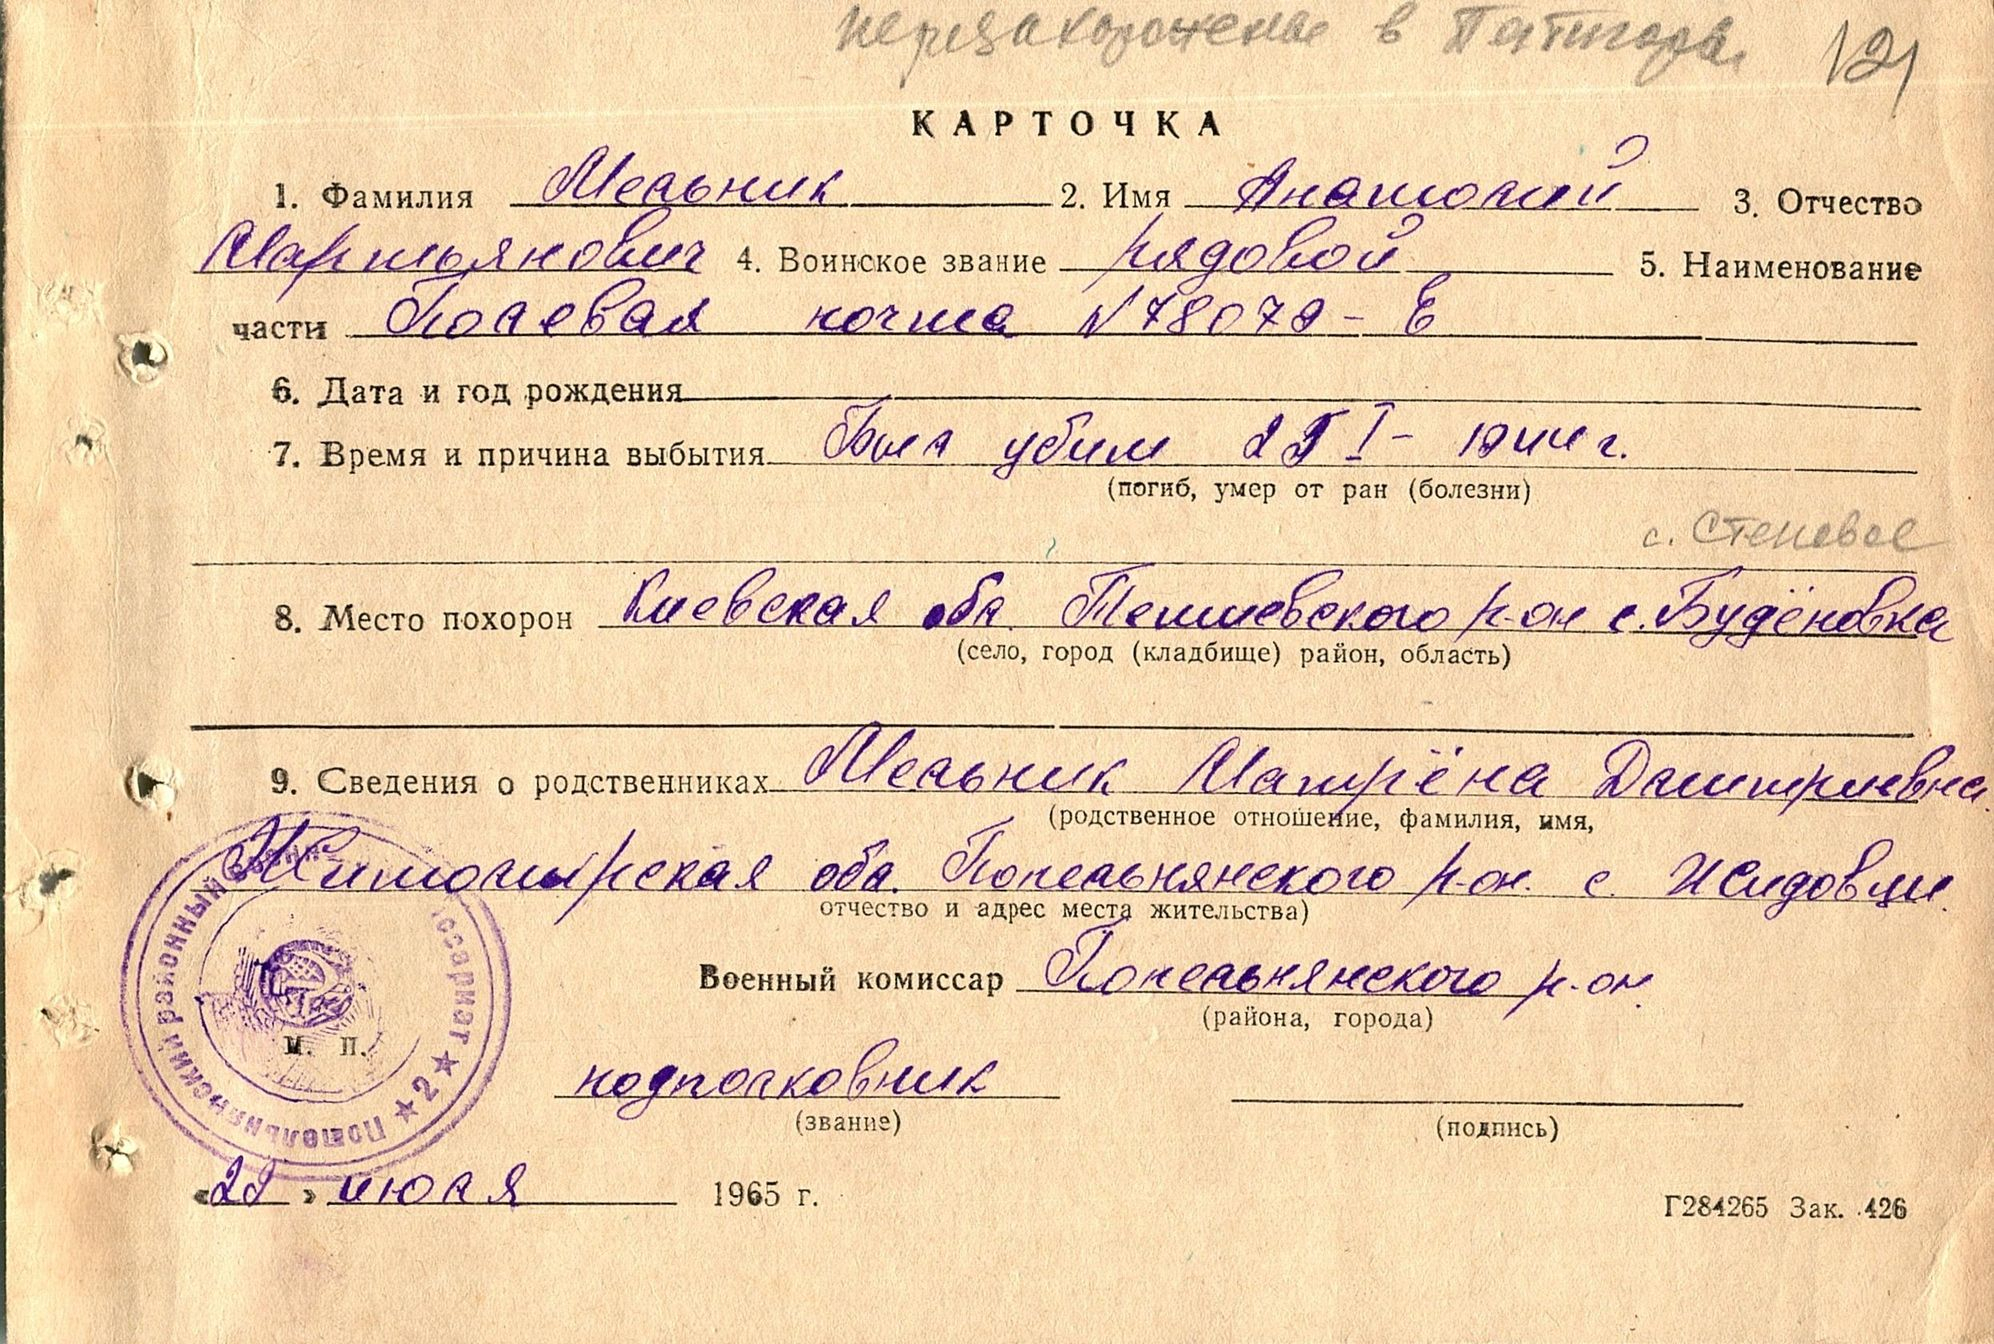 перезахоронение в Пятигоры 121
КАРТОЧКА
1. Фамилия Мельник 2. Имя Анатолий 3. Отчество
Мартьянович 4. Воинское звание рядовой 5. Наименование
части Полевая почта №
6. Дата и год рождения
7. Время и причина выбытия Был убит I - 1944 г.
(погиб, умер от ран (болезни)
с.
8. Место похорон Киевская обл. р-он с. Будёновка
(село, город (кладбище) район, область)
9. Сведения о родственниках Мельник Матрёна Дмитриевна
(родственное отношение, фамилия, имя,
Житомирская обл. Попельнянского р-он. с. Жидовци.
отчество и адрес места жительства)
Военный комиссар Попельнянского р-он.
(района, города)
М. П.
подполковник
(звание) (подпись)
Попельнянский районный ★ 2 ★
« » июля 1965 г.
Г284265 Зак. 426